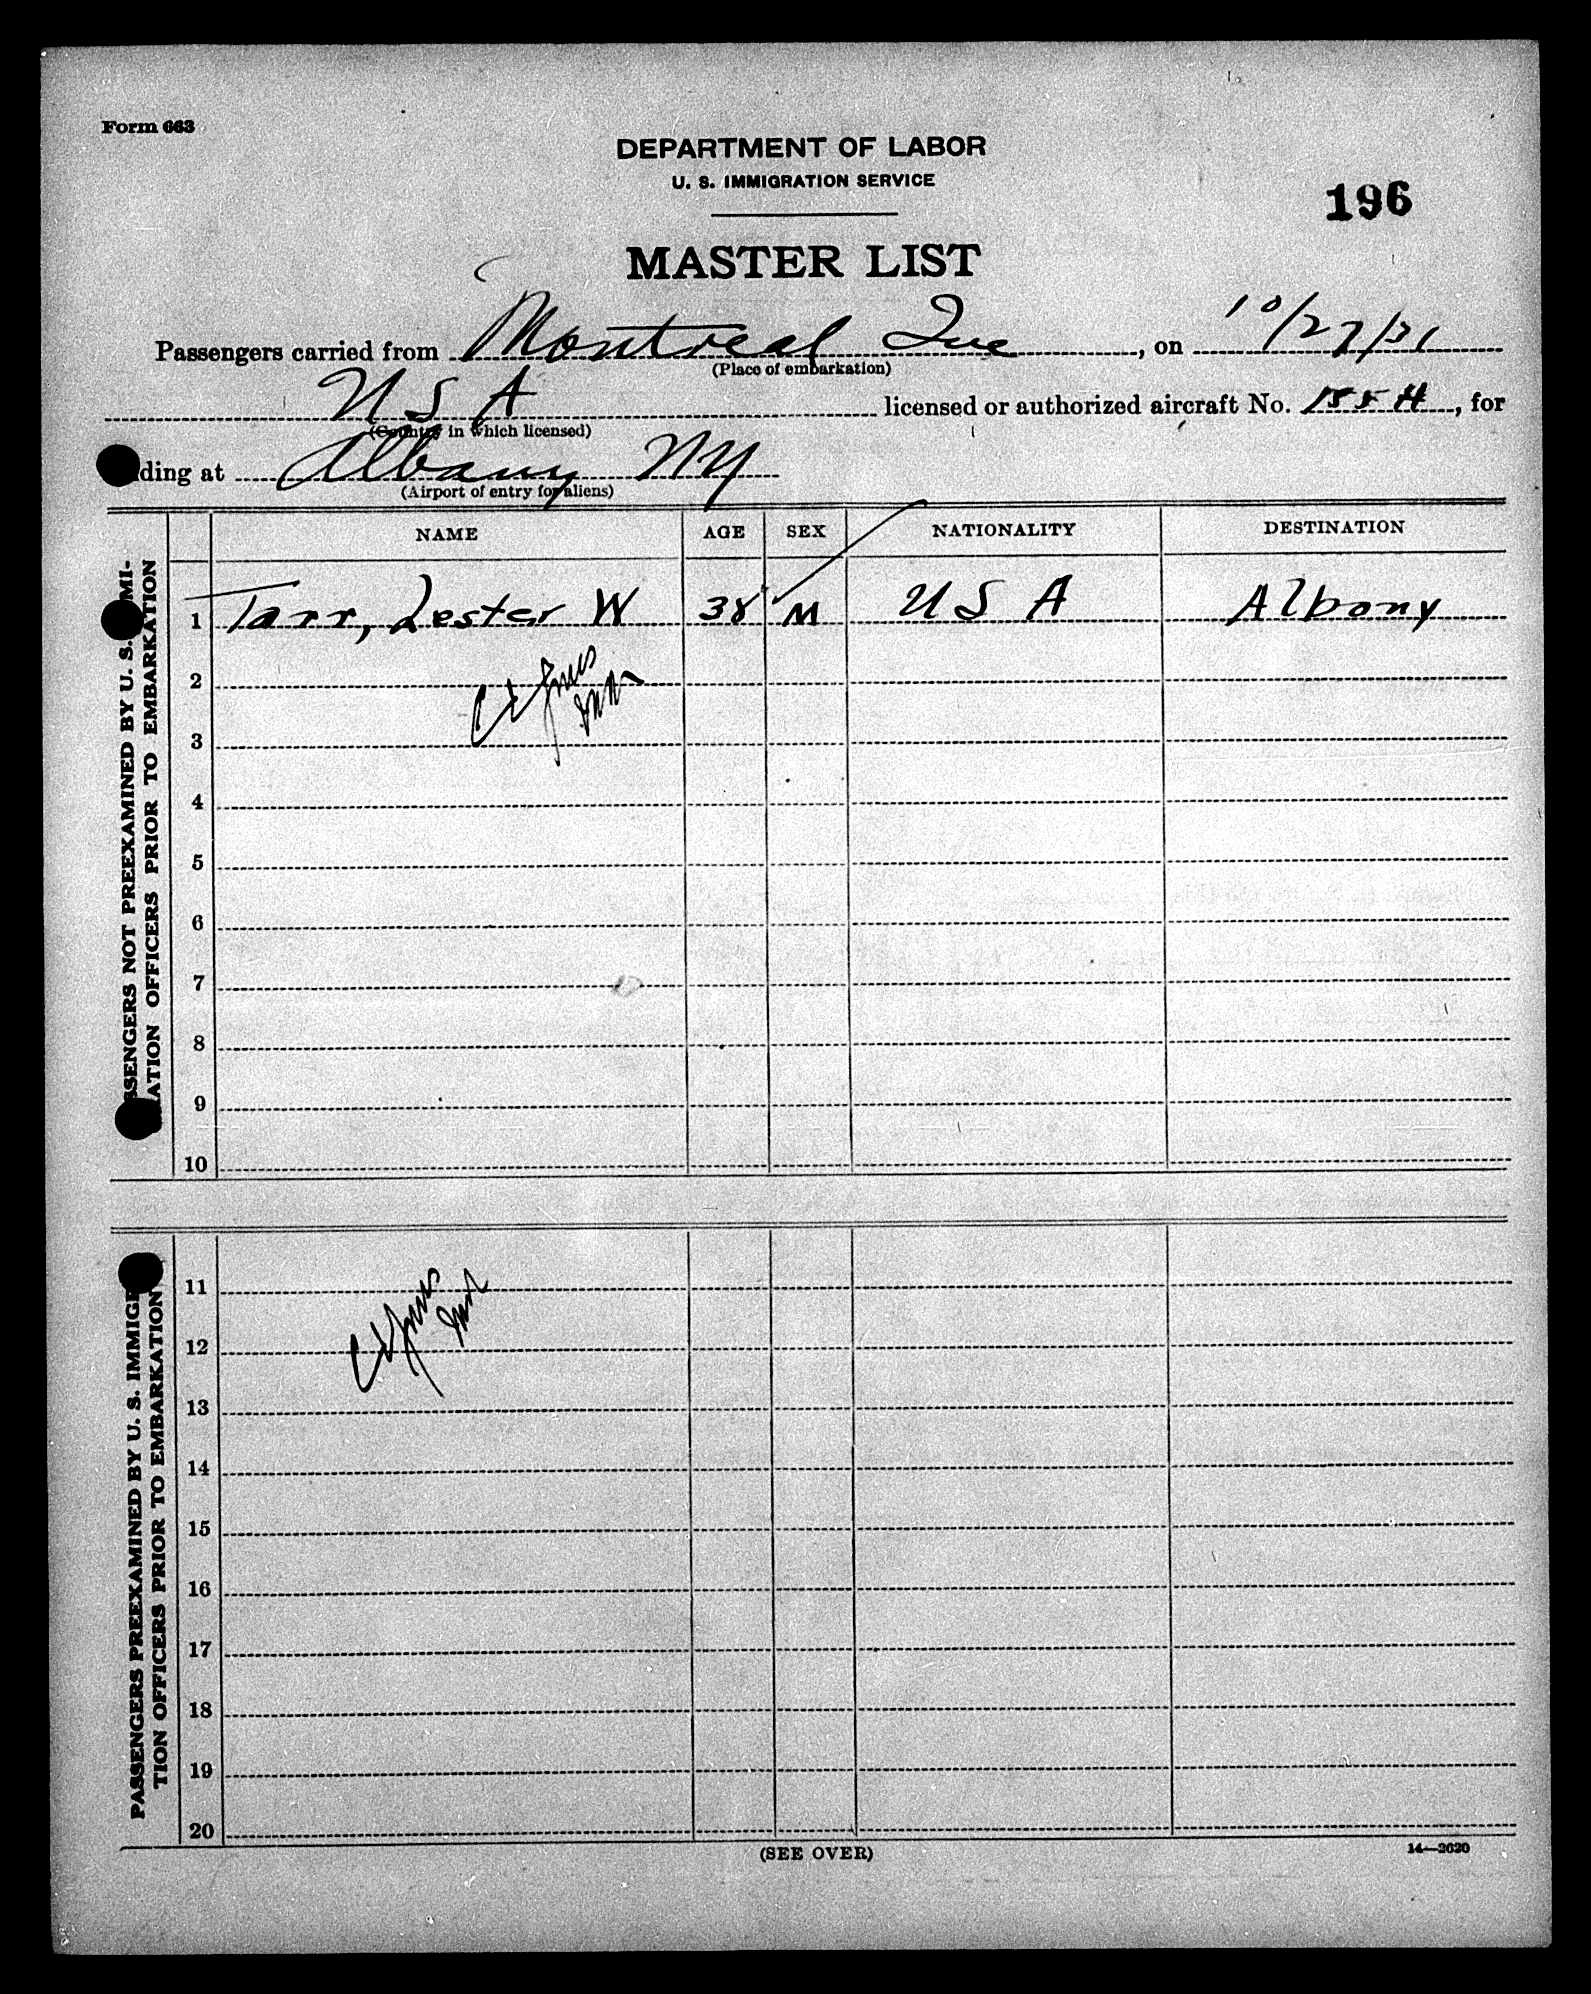 Form 663
DEPARTMENT OF LABOR
U. S. IMMIGRATION SERVICE
196
MASTER LIST
Passengers carried from Montreal Que, on 10/27/31
(Place of embarkation)
U S A licensed or authorized aircraft No. 155 H, for
(Country in which licensed)
ding at Albany NY
(Airport of entry for aliens)
NAME AGE SEX NATIONALITY DESTINATION
SSENGERS NOT PREEXAMINED BY U. S. MI-
RATION OFFICERS PRIOR TO EMBARKATION
1 Tarr, Lester W 38 M U S A Albany
2
3
4
5
6
7
8
9
10
PASSENGERS PREEXAMINED BY U. S. IMMIGR
TION OFFICERS PRIOR TO EMBARKATION
11
12
13
14
15
16
17
18
19
20
(SEE OVER)
14—2020